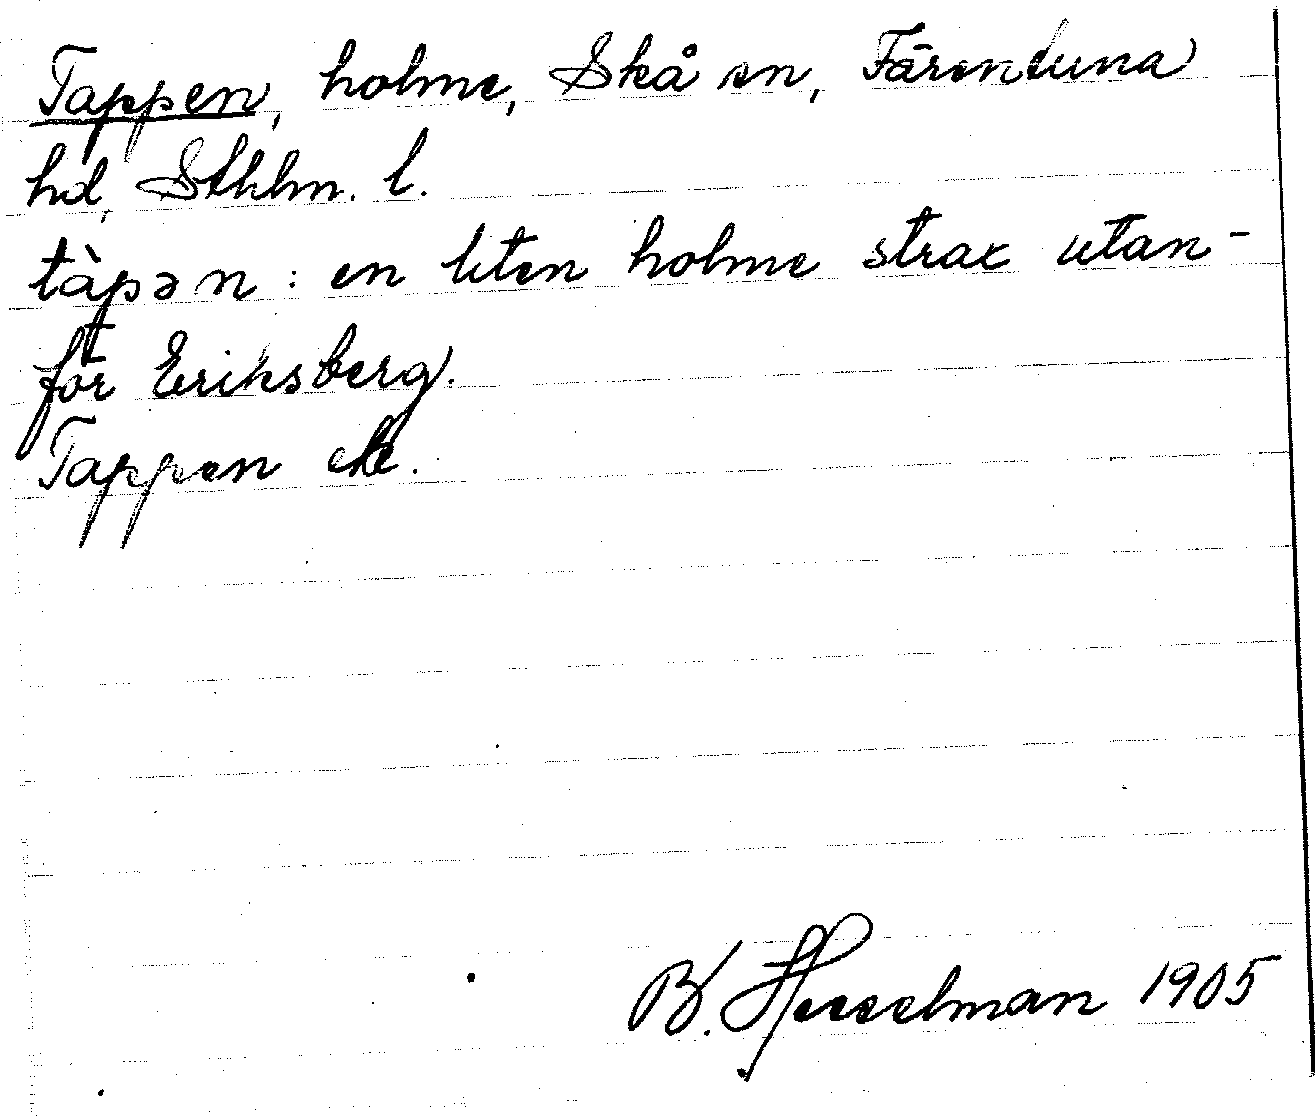 Tappen, holme, Skå sn, Färentuna
hd, Sthlm. l.
tàpən : en liten holme strax utan-
för Eriksberg.
Tappen ek.
B. Hesselman 1905